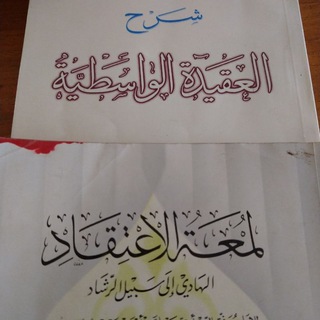 شرح
العقيدة الواسطية
لمعة الاعتقاد
الهادي إلى سبيل الرشاد